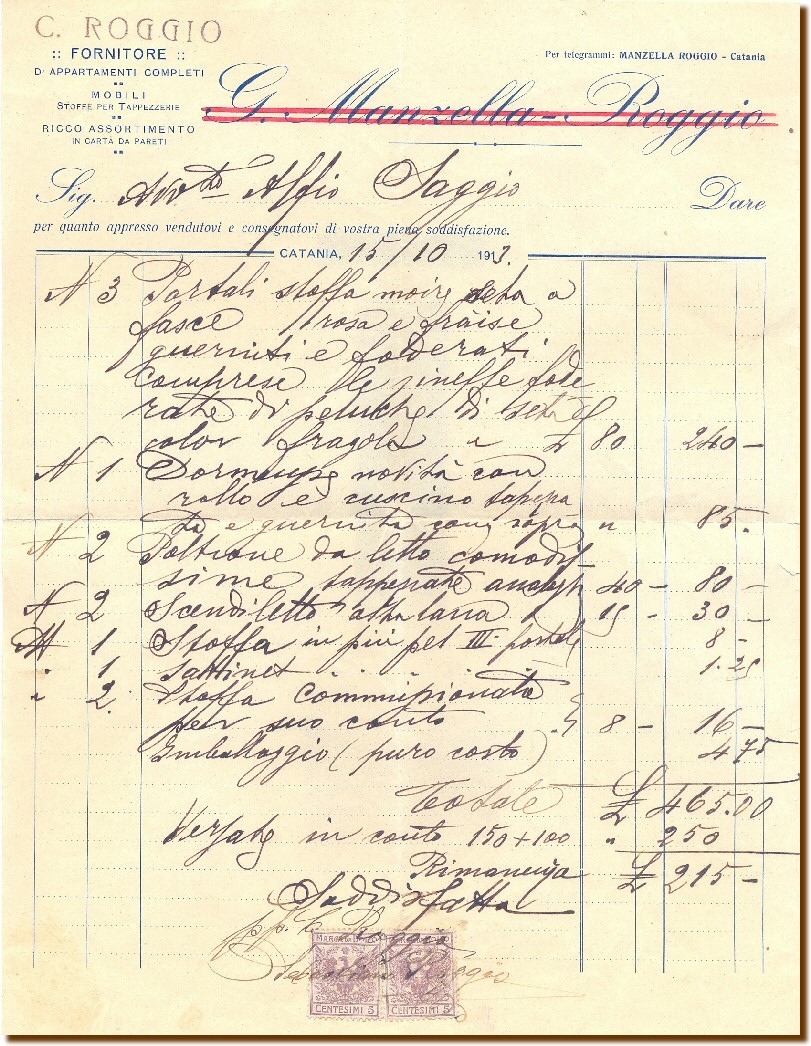 C. ROGGIO
:: FORNITORE ::
D'APPARTAMENTI COMPLETI
MOBILI
STOFFE PER TAPPEZZERIE
RICCO ASSORTIMENTO
IN CARTA DA PARETI
Per telegrammi: MANZELLA ROGGIO - Catania
G. Manzella - Roggio
Sig. Avv.to Alfio Saggio Dare
per quanto appresso vendutovi e consegnatovi di vostra piena soddisfazione.
CATANIA, 15/10 1913.
N 3 Portali stoffa moire seta a
fasce rosa e fraise
guerniti e foderati
comprese le fode
rate di peluche di seta
color fragola a £ 80 240 —
N 1 Dormeuse novità con
rollo e cuscino tappezza
ta e guernita con sopra " 85.
N 2 Poltrone da letto comodis
sime tappezzate 40 — 80 —
N 2 Scendiletto alta lana 15 — 30 —
M 1 Stoffa in più pel III° portale 8 —
" 1 Sattinet . . . 1.25
" 2. Stoffa commissionata
per suo conto 8 — 16 —
Imballaggio (puro costo) 4 75
Totale £ 465.00
Versate in conto 150 + 100 " 250
Rimanenza £ 215 —
Soddisfatta
p.p. C. Roggio
Sebastiano Roggio
MARCA DA BOLLO
CENTESIMI 5
CENTESIMI 5